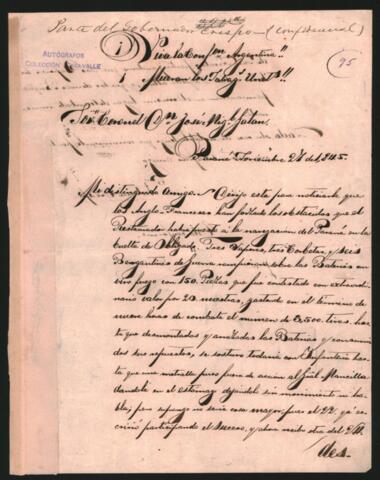 Parte del Gobernador Crespo — (confidencial)
AUTÓGRAFOS
COLECCIÓN
95
¡Viva la Confon Argentina!!
¡Mueran los Salvags Units!!
Sor Coronel Dn José Migl Galan.
Paraná Noviembre 24 de 1845.
Mi distinguido amigo. Dirijo esta para noticiarle que
los Anglo Franceses han forzado los obstaculos que el
Restaurador habia puesto á la navegacion del Paraná en la
buelta de Obligado. Tres Vapores, tres Corbetas y seis
Bergantines de Guerra rompieron sobre las Baterias un
vivo fuego con 150 Piezas que fue contestado con extraordi-
nario valor por 23 nuestras, gastando en el termino de
nueve horas de combate el numero de 3,500 tiros, has-
ta que desmontadas y anuladas las Baterias y consumi-
dos sus repuestos, se sostuvo todavia con Infanteria has-
ta que una metralla puso fuera de accion al Jral Mancilla
dandole en el estomago dejandole sin movimiento ni ha-
bla, pero supongo no seria cosa mayor, pues el 22 ya es-
cribió participando el suceso, y ahora recibo otra del
des-